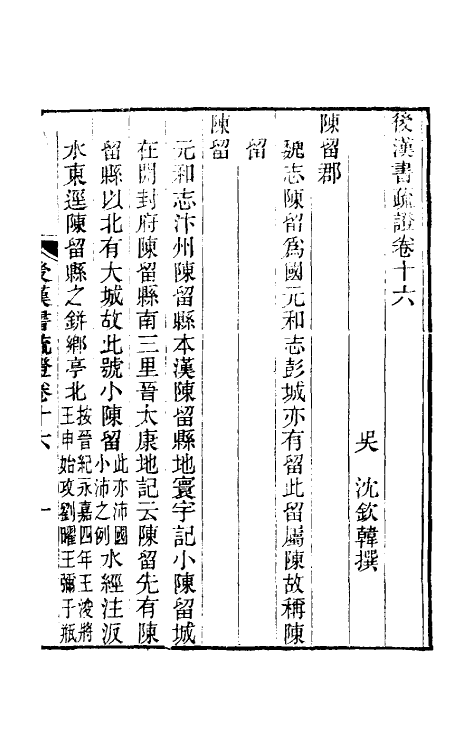 後漢書疏證卷十六
吳 沈欽韓撰
陳留郡
魏志陳留爲國元和志彭城亦有留此留屬陳故稱陳
留
陳留
元和志汴州陳留縣本漢陳留縣地寰宇記小陳留城
在開封府陳留縣南三里晉太康地記云陳留先有陳
留縣以北有大城故此號小陳留此亦沛國小沛之例水經注汳
水東逕陳留縣之鉼鄉亭北按晉紀永嘉四年王浚將王申始攻劉曜王彌于瓶
後漢書疏證卷十六 一